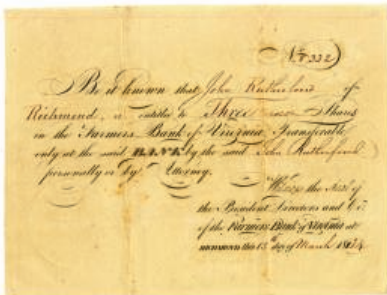 No 332
Be it known that John Rutherford of
Richmond, is entitled to Three Shares
in the Farmers Bank of Virginia Transferable
only at the said BANK by the said John Rutherford
personally or by Attorney.
Witness the Seal of
the President Directors and Co.
of the Farmers Bank of Virginia at
RICHMOND this 15th day of March